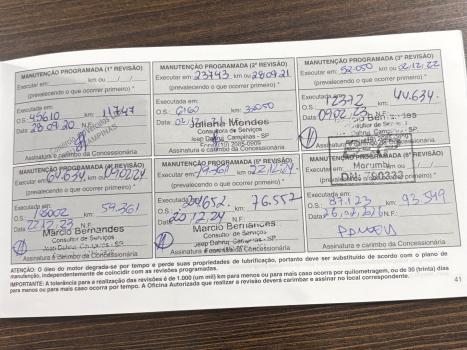 MANUTENÇÃO PROGRAMADA (1ª REVISÃO)
Executar em: km ou / /
(prevalecendo o que ocorrer primeiro) *
Executada em:
O.S.: 45610 km: 11747
Data 28.09.20 N.F.
Assinatura e carimbo da Concessionária
MANUTENÇÃO PROGRAMADA (2ª REVISÃO)
Executar em: 23743 km ou 28.09.21
(prevalecendo o que ocorrer primeiro) *
Executada em:
O.S.: 6160 km:
Data
Juliana Mendes
Consultora de Serviços
Jeep Dahruj Campinas - SP
Assinatura e carimbo da Concessionária
MANUTENÇÃO PROGRAMADA (3ª REVISÃO)
Executar em: 52.050 km ou 02.12.22
(prevalecendo o que ocorrer primeiro) *
Executada em:
O.S.: 12372 km: 44.634
Data 09.02.23 N.F.
Campinas - SP
Assinatura e carimbo da Concessionária
MANUTENÇÃO PROGRAMADA (4ª REVISÃO)
Executar em: 64.634 km ou 09.02.24
(prevalecendo o que ocorrer primeiro) *
Executada em:
O.S.: 18002 km: 59.361
Data 22.12.23 N.F.
Marcio Bernardes
Consultor de Serviços
Jeep Dahruj Campinas - SP
Assinatura e carimbo da Concessionária
(5ª REVISÃO)
Executar em: 79.361 km ou 22.12.24
(prevalecendo o que ocorrer primeiro) *
Executada em:
O.S.: km: 76.552
Data 20.12.24 N.F.
Marcio Bernardes
Consultor de Serviços
Jeep Dahruj Campinas - SP
Assinatura e carimbo da Concessionária
MANUTENÇÃO PROGRAMADA (6ª REVISÃO)
Marumbi
(prevalecendo o que ocorrer primeiro) *
Executada em:
O.S.: 87.123 km: 93.549
Data N.F.
Assinatura e carimbo da Concessionária
ATENÇÃO: O óleo do motor degrada-se por tempo e perde suas propriedades de lubrificação, portanto deve ser substituído de acordo com o plano de
manutenção, independentemente de coincidir com as revisões programadas.
IMPORTANTE: A tolerância para a realização das revisões é de 1.000 (um mil) km para menos ou para mais caso ocorra por quilometragem, ou de 30 (trinta) dias
para menos ou para mais caso ocorra por tempo. A Oficina Autorizada que realizar a revisão deverá carimbar e assinar no local correspondente.
41